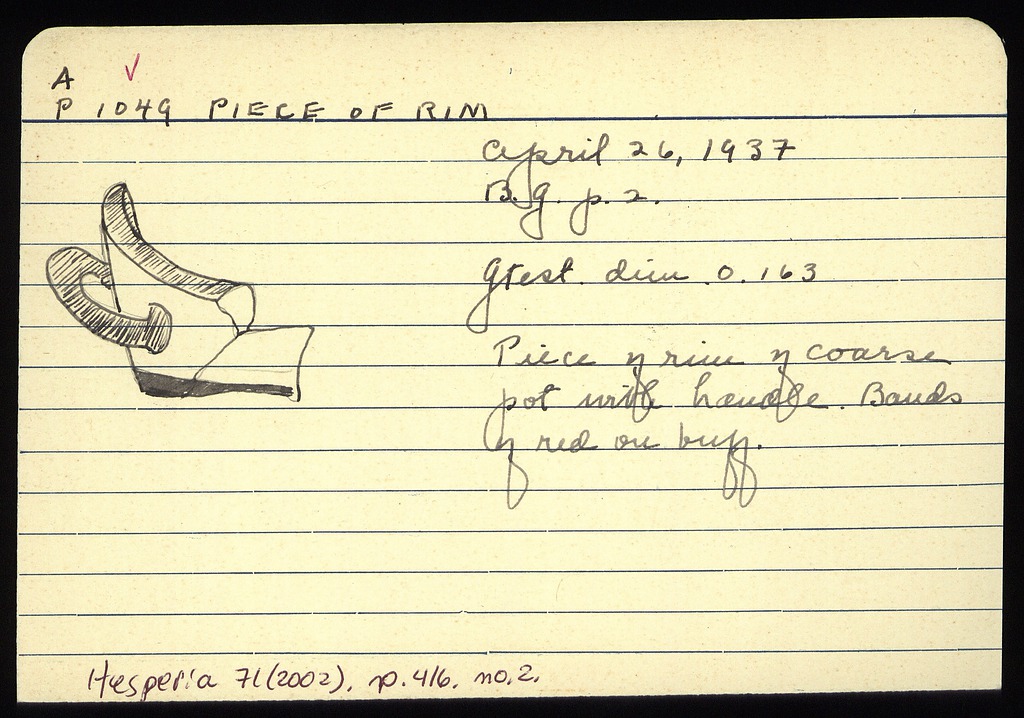 A ✓
P 1049 PIECE OF RIM
April 26, 1937
B. g. p. 2.
Gtest. dim. 0.163
Piece of rim of coarse
pot with handle. Bands
of red on buff.
Hesperia 71(2002), p.416. no.2.